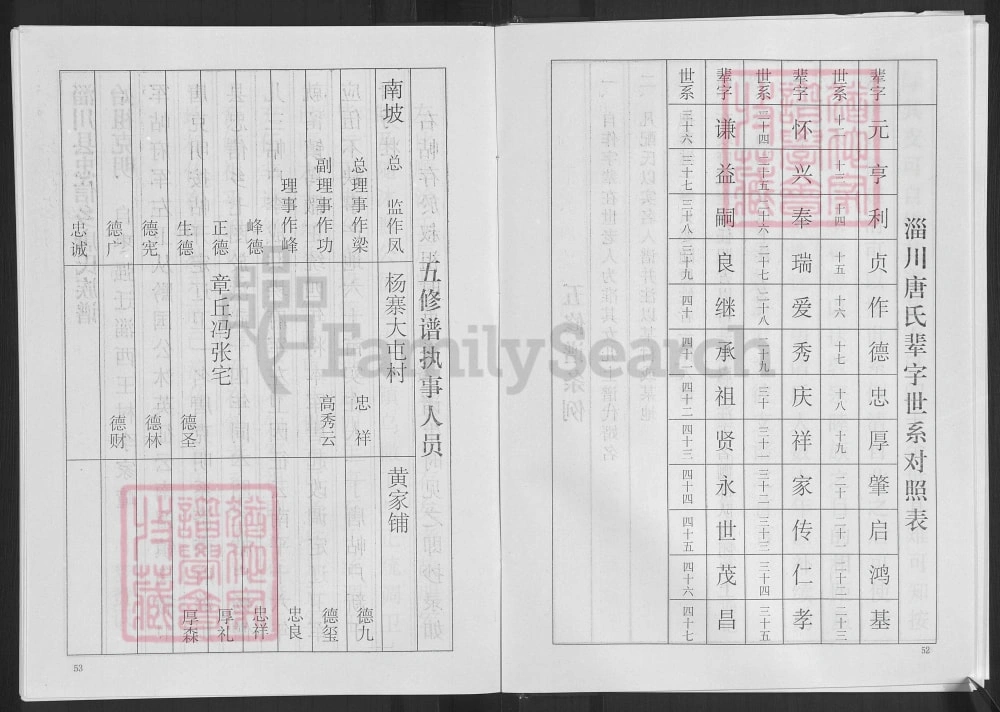 淄川唐氏辈字世系对照表
辈字 元 亨 利 贞 作 德 忠 厚 肇 启 鸿 基
世系 十二 十三 十四 十五 十六 十七 十八 十九 二十 二十一 二十二 二十三
辈字 怀 兴 奉 瑞 爱 秀 庆 祥 家 传 仁 孝
世系 二十四 二十五 二十六 二十七 二十八 二十九 三十 三十一 三十二 三十三 三十四 三十五
辈字 谦 益 嗣 良 继 承 祖 贤 永 世 茂 昌
世系 三十六 三十七 三十八 三十九 四十 四十一 四十二 四十三 四十四 四十五 四十六 四十七
52
五修谱执事人员
南坡 总 监作凤
总理事作梁
副理事作功
理事作峰
峰德
正德
生德
德宪
德广
忠诚
杨寨大屯村
忠祥
高秀云
章丘冯张宅
德圣
德林
德财
黄家铺
德九
德玺
忠良
忠祥
厚礼
厚森
53
猶他家
譜學會
珍藏
猶他家
譜學會
珍藏
FamilySearch